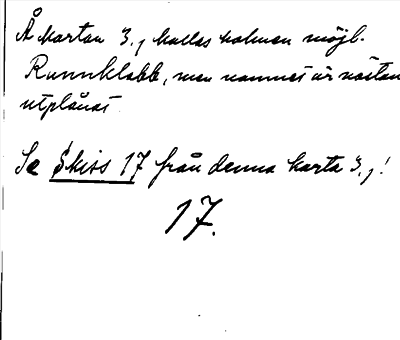 Å kartan 3., kallas holmen möjl.
Runnklabb, men namnet är nästan
utplånat.
Se Skiss 17 från denna karta 3.,!
17.